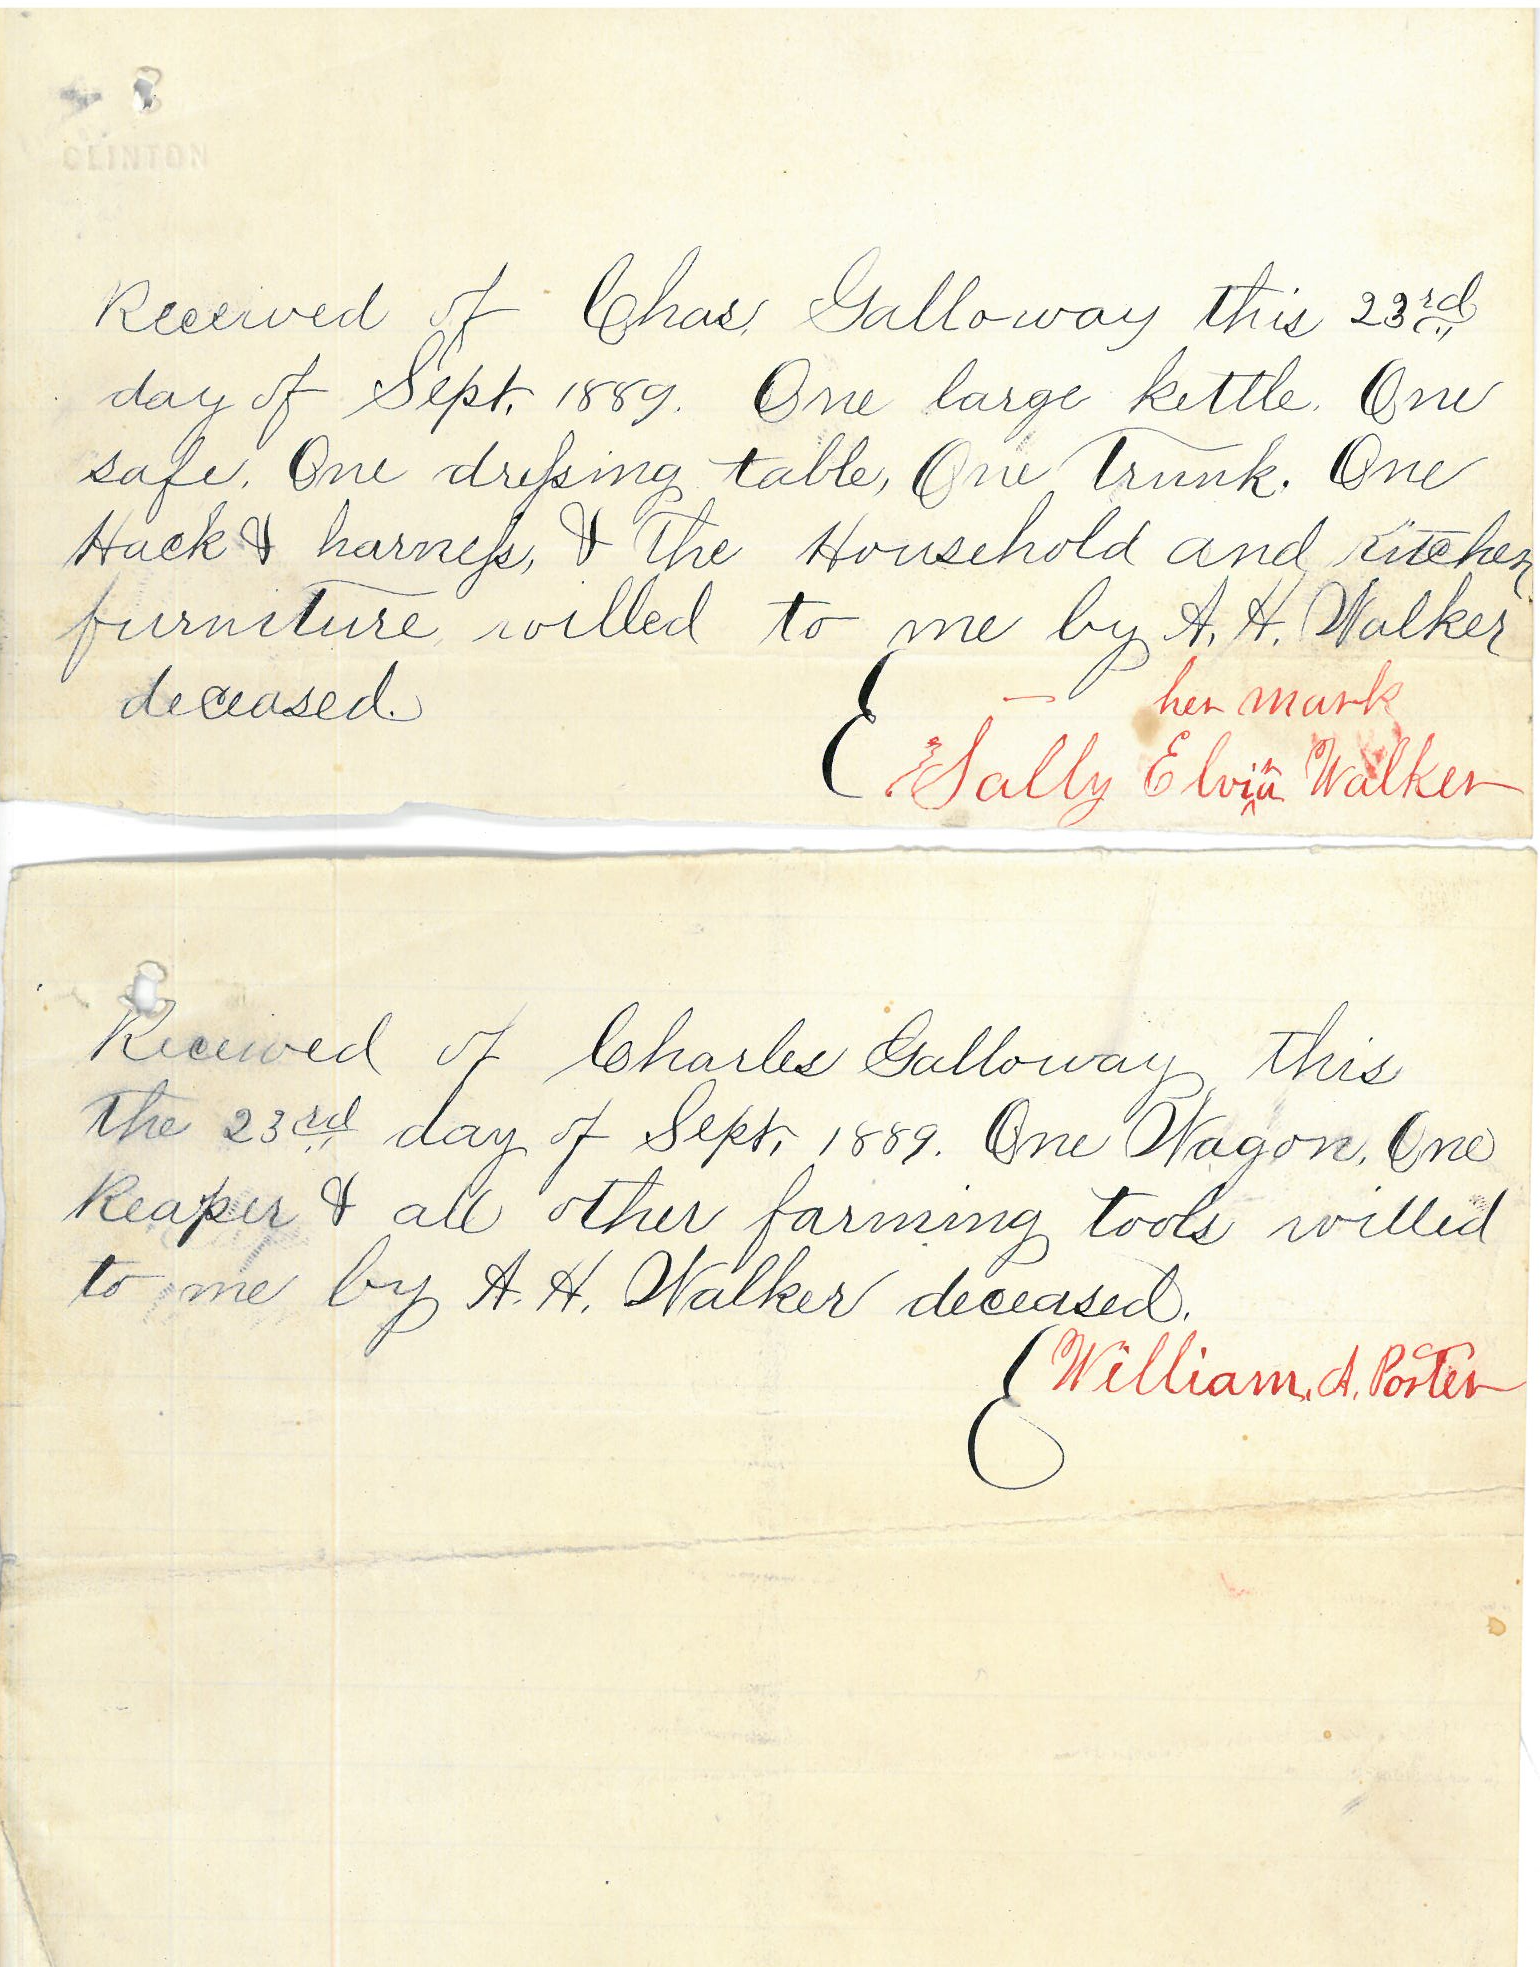 CLINTON
Received of Chas. Galloway this 23rd
day of Sept. 1889. One large kettle. One
safe. One dressing table, One Trunk. One
Hack & harness, & The Household and Kitchen
furniture willed to me by A. H. Walker
deceased.
her mark
Sally Elvin Walker
Received of Charles Galloway this
the 23rd day of Sept. 1889. One Wagon, One
Reaper & all other farming tools willed
to me by A. H. Walker deceased.
William. A. Porter